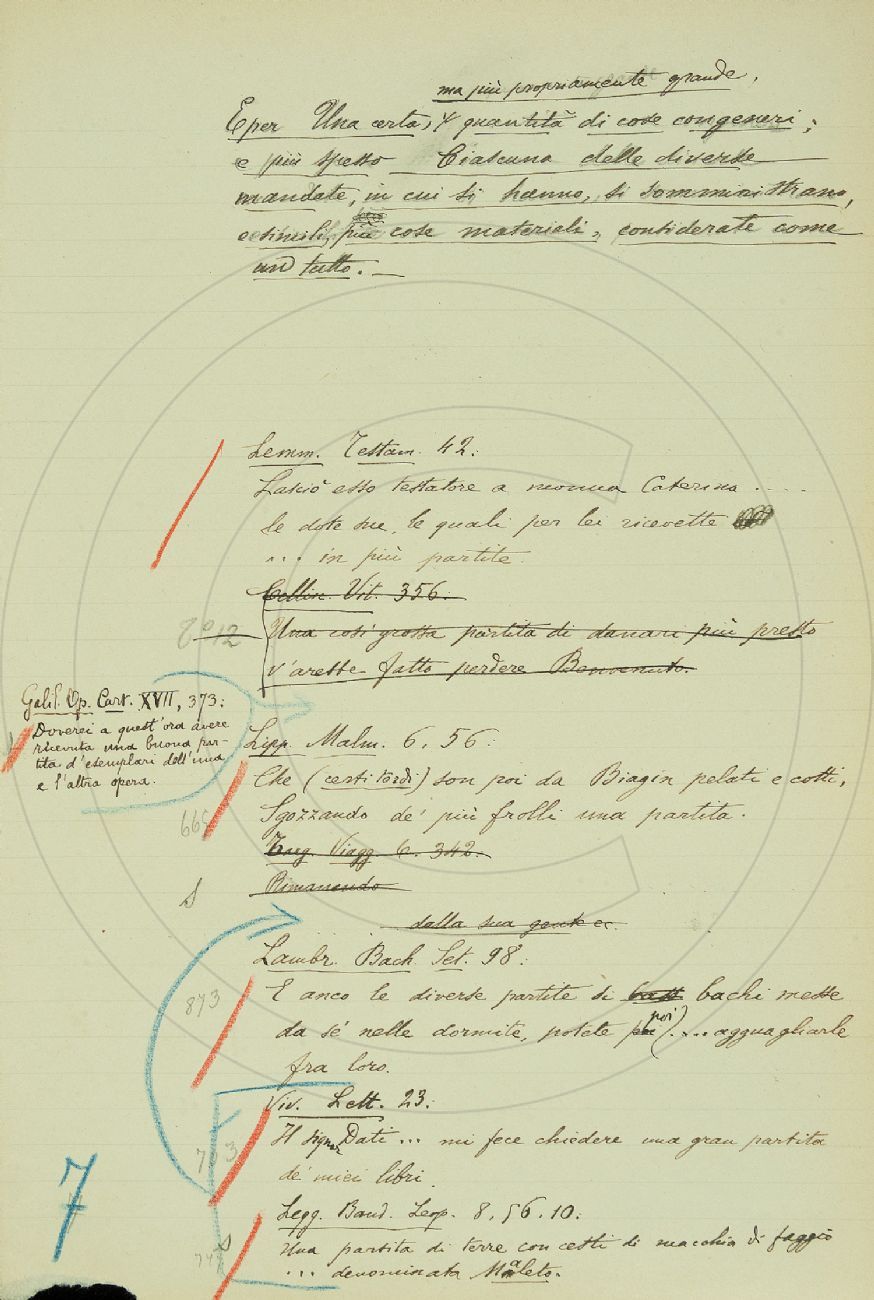 ma più propriamente grande,
E per Una certa, quantità di cose congeneri;
e più spesso Ciascuna delle diverse
mandate, in cui si hanno, si somministrano,
e simili, più cose materiali, considerate come
un tutto. —
Lemm. Testam. 42:
Lasciò esso testatore a monna Caterina ....
le dote sue, le quali per lei ricevette
... in più partite.
Cellin. Vit. 356:
Una così grossa partita di danari più presto
v'arebbe fatto perdere Benvenuto.
Galil. Op. Cart. XVII, 373:
Doverei a quest'ora avere
ricevuta una buona par-
tita d'esemplari dell'una
e l'altra opera.
Lipp. Malm. 6, 56:
Che (certi tordi) son poi da Biagin pelati e cotti,
Sgozzando de' più frolli una partita.
665
Targ. Viagg. 6. 342.
Rimanendo
dalla sua gente ec.
Lambr. Bach. Set. 98:
873
E anco le diverse partite di bachi messe
da sé nelle dormite, potete poi) .... agguagliarle
fra loro.
Viv. Lett. 23:
Il Signor Dati ... mi fece chiedere una gran partita
de' miei libri.
Legg. Band. Leop. 8, 56. 10:
Una partita di terre con cesti di macchia di faggio
... denominata Maleto.
7